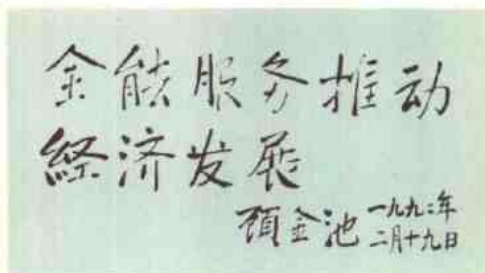 全能服务推动
経济发展
顾金池 一九九二年
二月十九日